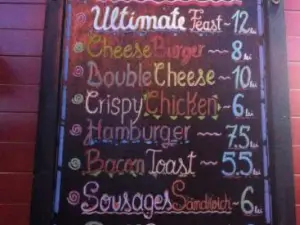 Ultimate Feast ~ 12 lei
Cheese Burger ~ 8 lei
Double Cheese ~ 10 lei
Crispy Chicken ~ 6 lei
Hamburger ~~ 7.5 lei
Bacon Toast ~~ 5.5 lei
Sousages Sandwich ~ 6 lei